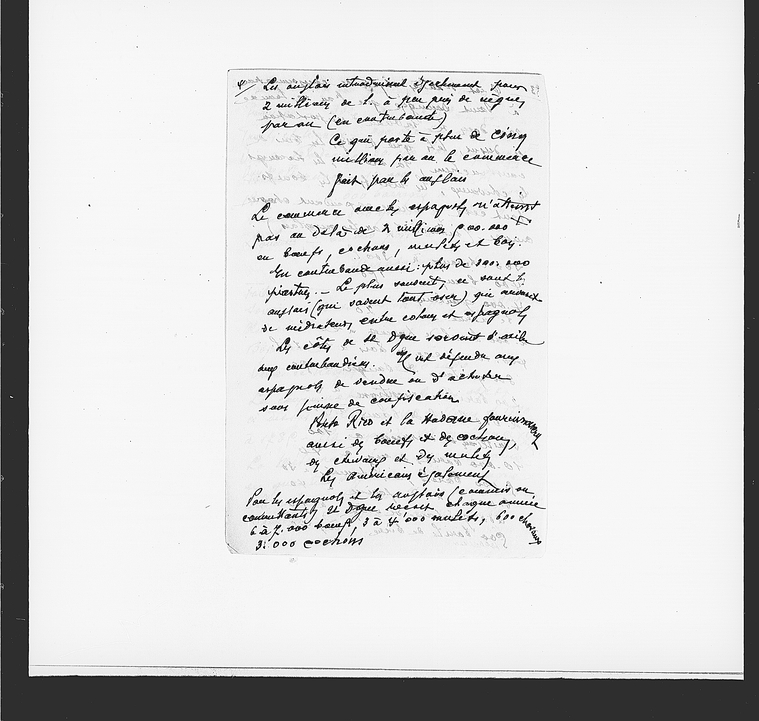 Les anglais introduisent également pour
2 millions de l. à peu près de nègres
par an (en contrebande)
Ce qui porte à plus de cinq
millions par an le commerce
fait par les anglais
Le commerce avec les espagnols n'atteint
pas au delà de 2 millions 000.000
en bœufs, cochons, mulets et bois.
En contrebande aussi: plus de 300.000
piastres. – Le plus souvent, ce sont les
anglais (qui savent tant oser) qui
de médiateurs entre colons et espagnols
Les côtes de St Dgue servent d'asile
aux contrebandiers. Il est défendu aux
espagnols de vendre ou d'acheter
sous peine de confiscation
Porto Rico et la Havane fournissent
aussi des bœufs et des cochons,
des chevaux et des mulets
Les Américains également
Par les espagnols et les anglais (commis ou
committants) St Dgue reçoit chaque année
6 à 7.000 bœufs, 3 à 4.000 mulets, 600 chevaux
3.000 cochons